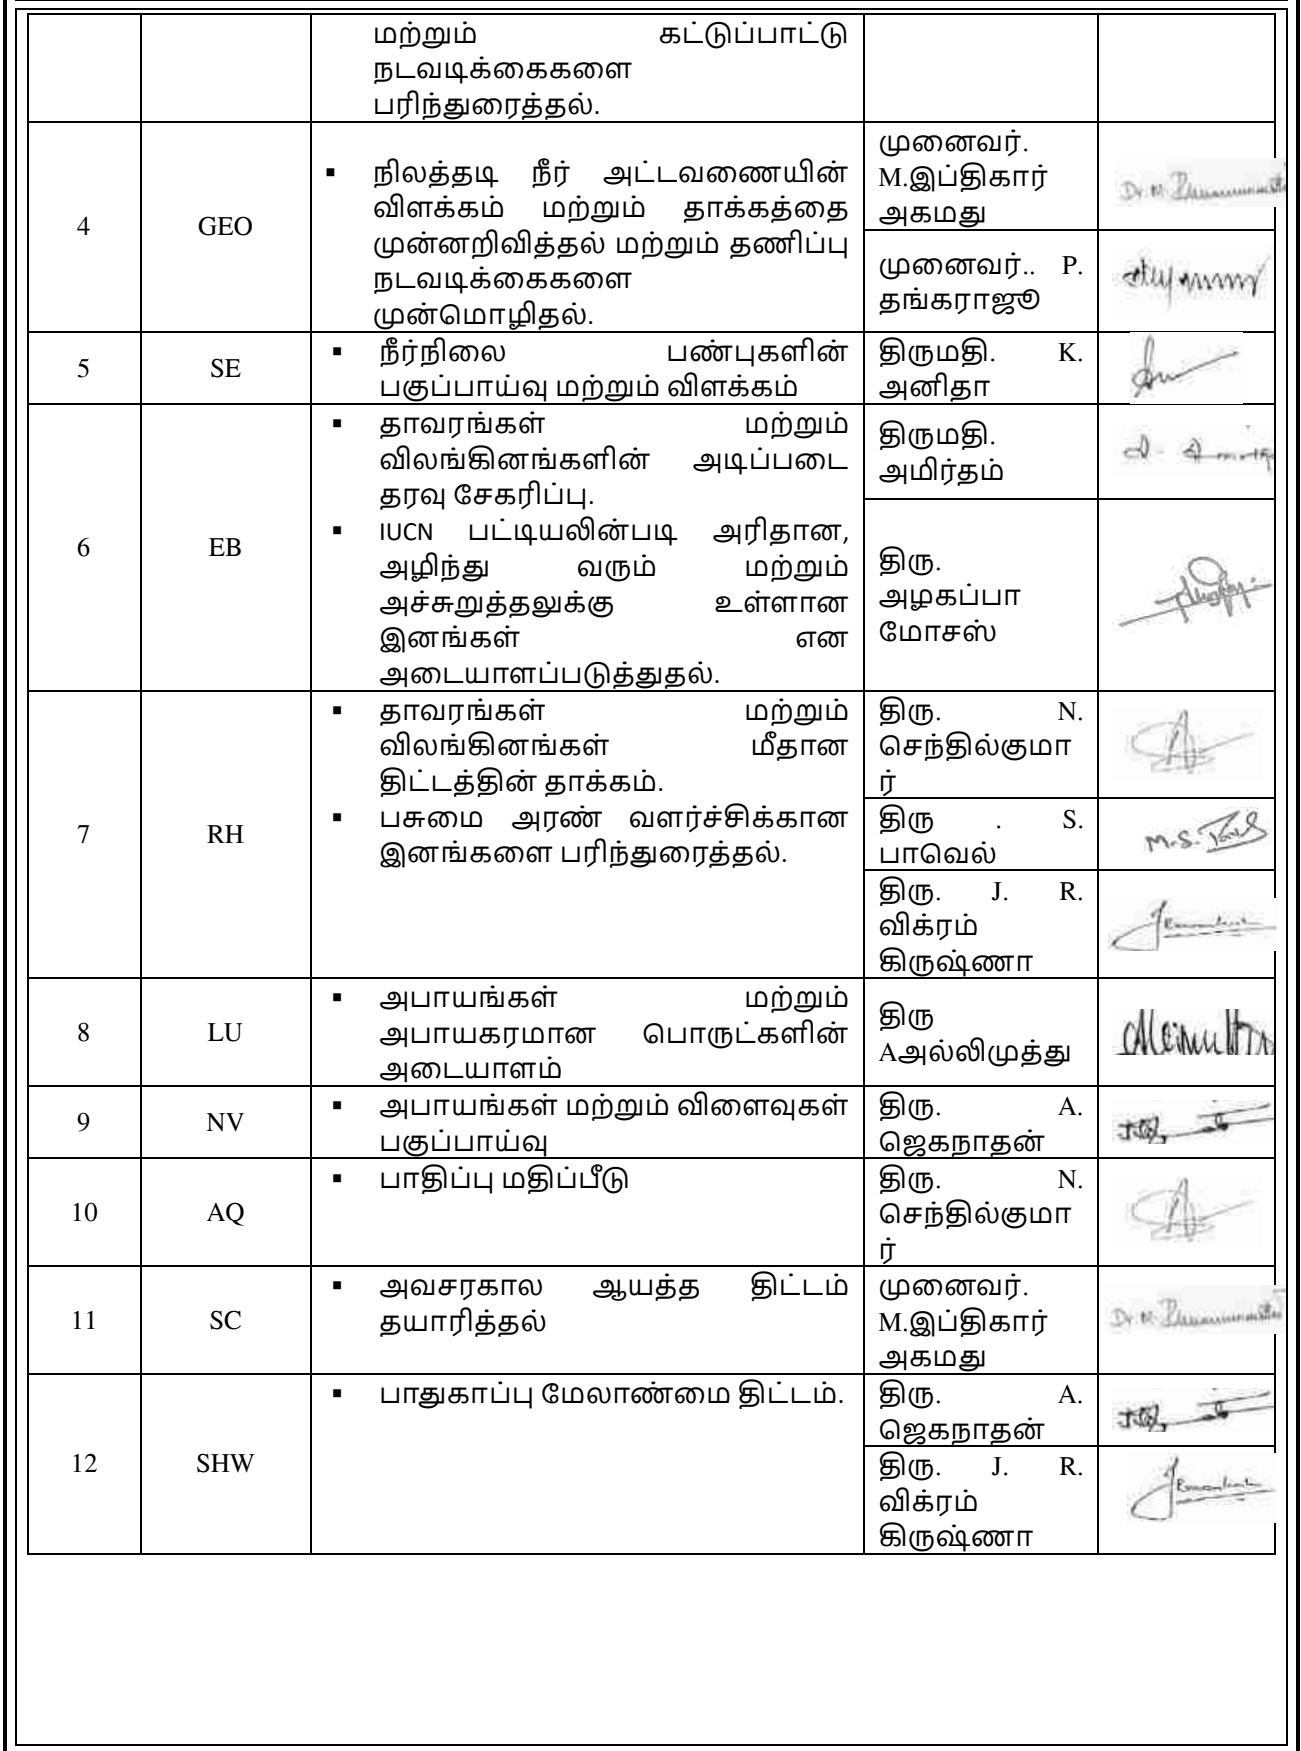 மற்றும் கட்டுப்பாட்டு
நடவடிக்கைகளை
பரிந்துரைத்தல்.
4
GEO
▪ நிலத்தடி நீர் அட்டவணையின்
விளக்கம் மற்றும் தாக்கத்தை
முன்னறிவித்தல் மற்றும் தணிப்பு
நடவடிக்கைகளை
முன்மொழிதல்.
முனைவர்.
M.இப்திகார்
அகமது
முனைவர்.. P.
தங்கராஜூ
5
SE
▪ நீர்நிலை பண்புகளின்
பகுப்பாய்வு மற்றும் விளக்கம்
திருமதி. K.
அனிதா
6
EB
▪ தாவரங்கள் மற்றும்
விலங்கினங்களின் அடிப்படை
தரவு சேகரிப்பு.
▪ IUCN பட்டியலின்படி அரிதான,
அழிந்து வரும் மற்றும்
அச்சுறுத்தலுக்கு உள்ளான
இனங்கள் என
அடையாளப்படுத்துதல்.
திருமதி.
அமிர்தம்
திரு.
அழகப்பா
மோசஸ்
7
RH
▪ தாவரங்கள் மற்றும்
விலங்கினங்கள் மீதான
திட்டத்தின் தாக்கம்.
▪ பசுமை அரண் வளர்ச்சிக்கான
இனங்களை பரிந்துரைத்தல்.
திரு. N.
செந்தில்குமா
ர்
திரு . S.
பாவெல்
திரு. J. R.
விக்ரம்
கிருஷ்ணா
8
LU
▪ அபாயங்கள் மற்றும்
அபாயகரமான பொருட்களின்
அடையாளம்
திரு
Aஅல்லிமுத்து
9
NV
▪ அபாயங்கள் மற்றும் விளைவுகள்
பகுப்பாய்வு
திரு. A.
ஜெகநாதன்
10
AQ
▪ பாதிப்பு மதிப்பீடு
திரு. N.
செந்தில்குமா
ர்
11
SC
▪ அவசரகால ஆயத்த திட்டம்
தயாரித்தல்
முனைவர்.
M.இப்திகார்
அகமது
12
SHW
▪ பாதுகாப்பு மேலாண்மை திட்டம்.
திரு. A.
ஜெகநாதன்
திரு. J. R.
விக்ரம்
கிருஷ்ணா